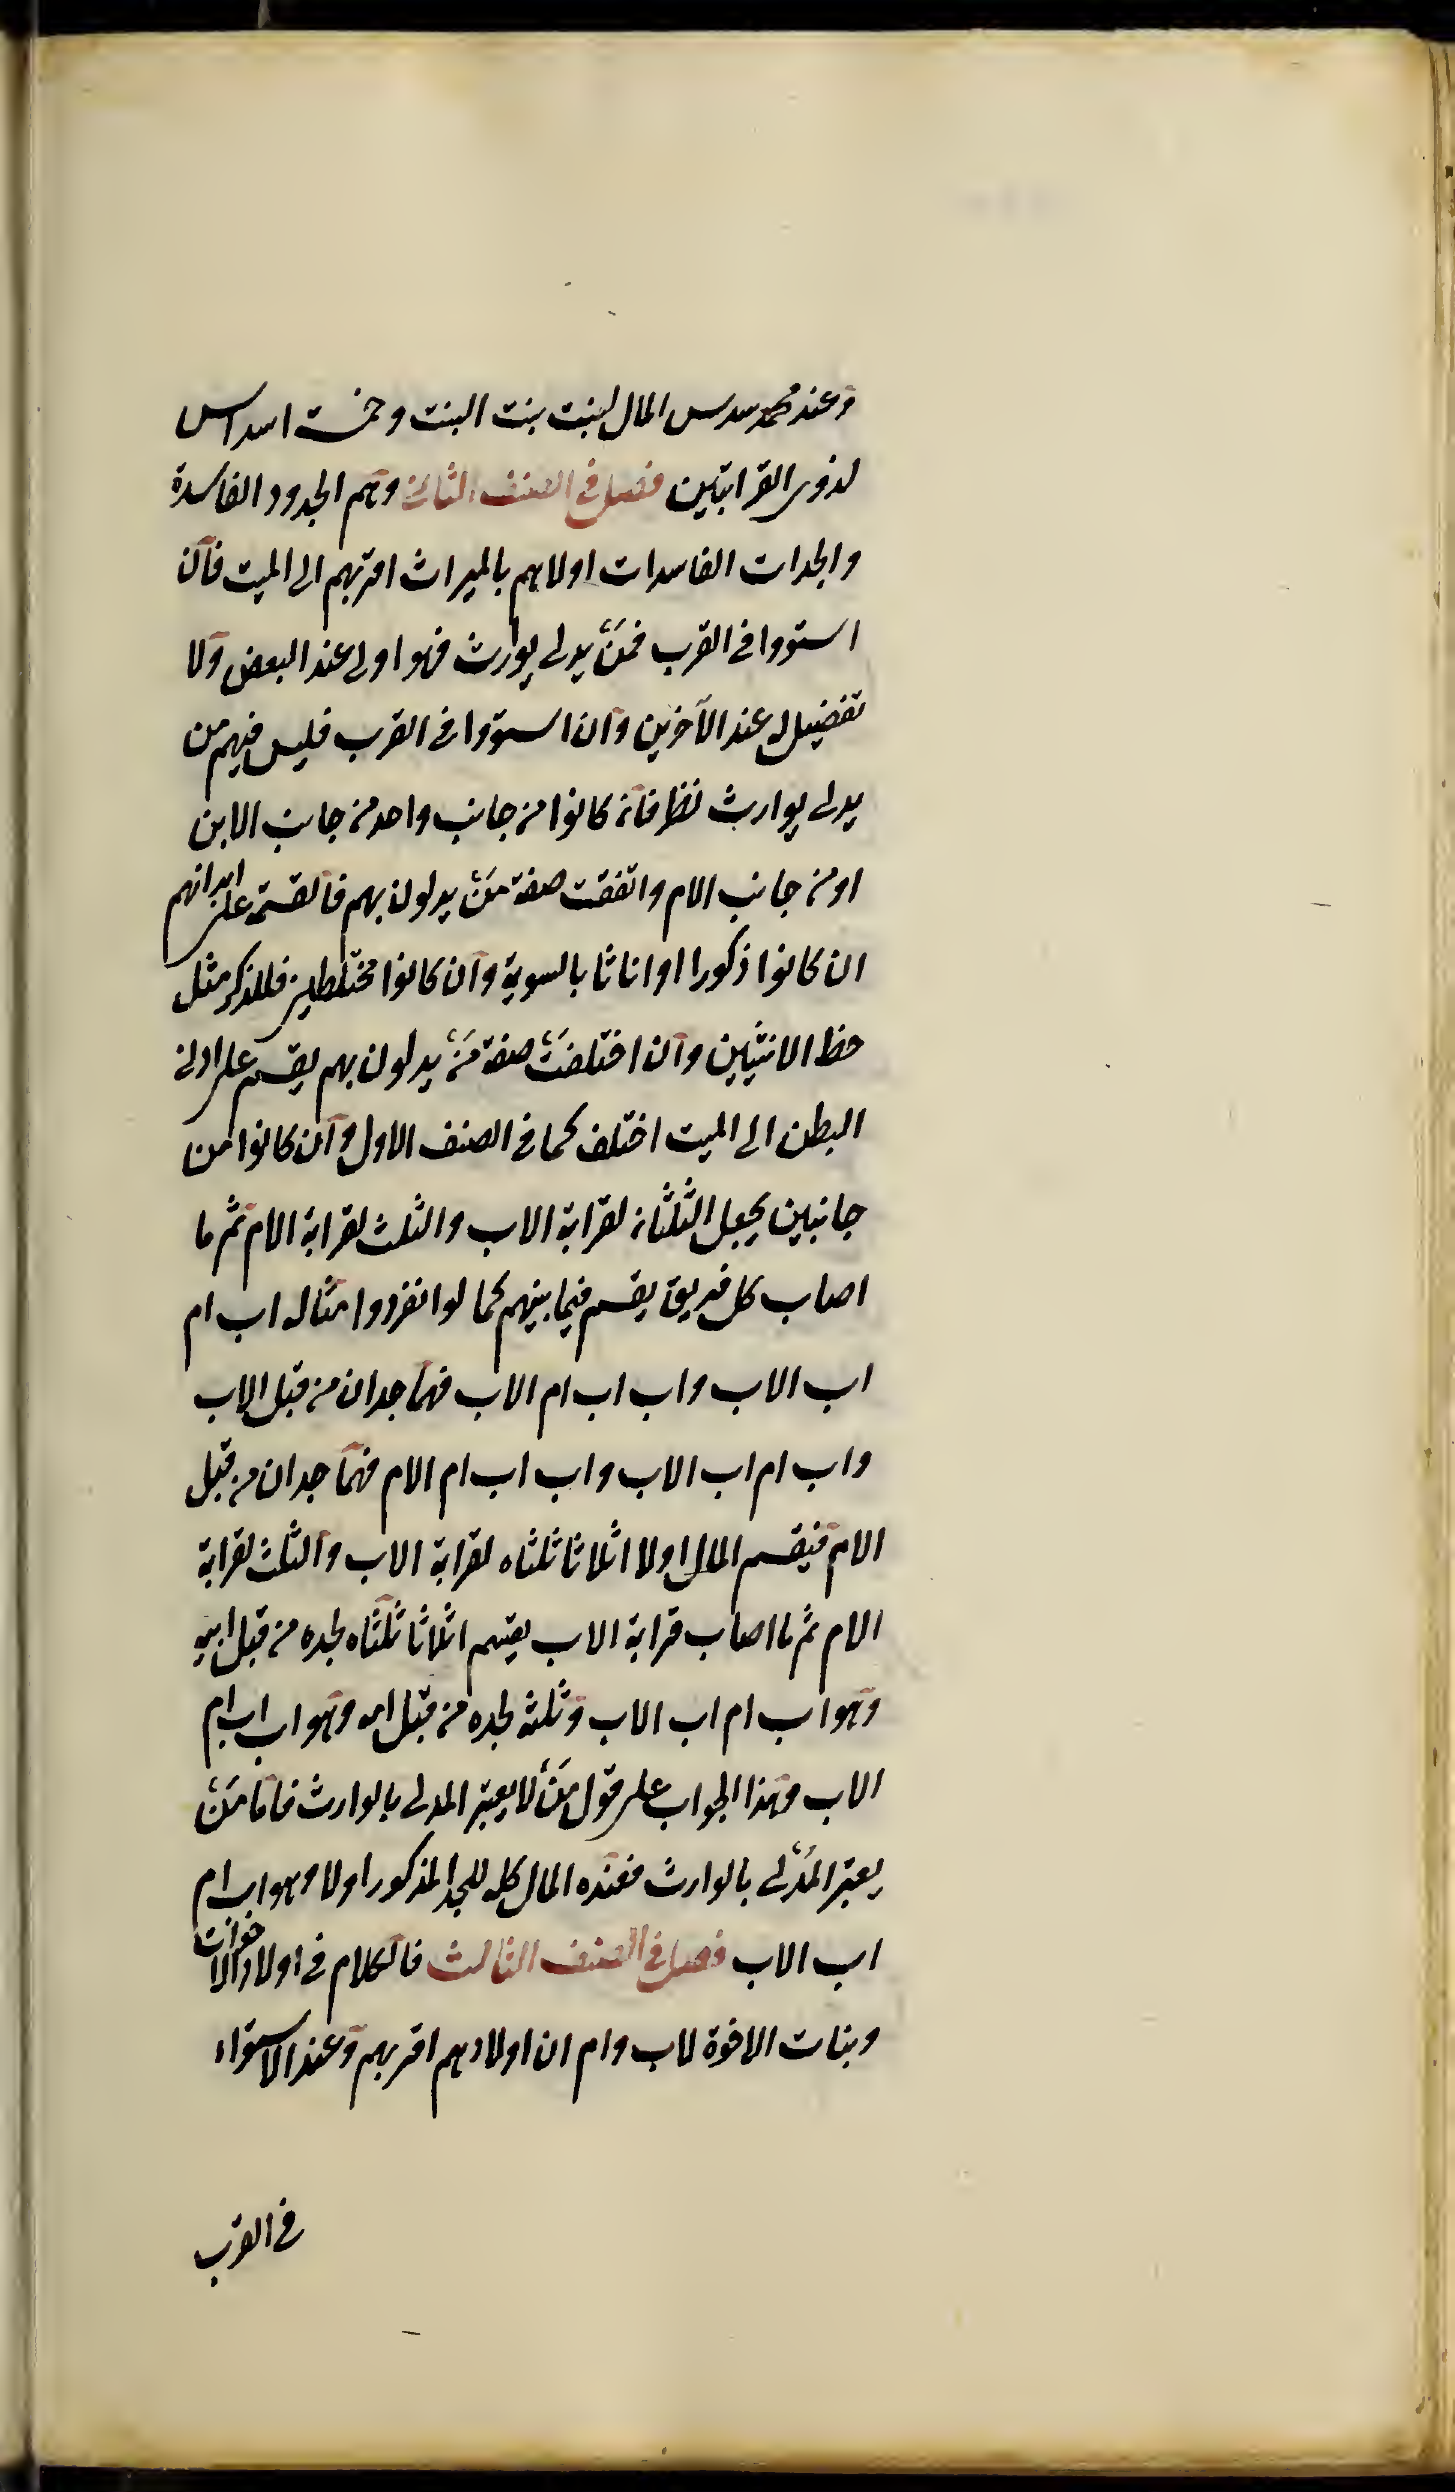 وعند محمد سدس المال لبنت بنت البنت وخمسة اسداس
لذوى القرابتين فصل فى الصنف الثانى وهم الجدود الفاسدة
والجدات الفاسدات اولاهم بالميراث اقربهم الى الميت فان
استووا فى القرب فمن يدلى بوارث فهو اولى عند البعض ولا
تفضيل له عند الآخرين وان استووا فى القرب فليس فيهم من
يدلى بوارث نظر فان كانوا من جانب واحد من جانب الابن
او من جانب الام واتفقت صفة من يدلون بهم فالقسمة على ابدانهم
ان كانوا ذكورا او اناثا بالسوية وان كانوا مختلطين فللذكر مثل
حظ الانثيين وان اختلفت صفة من يدلون بهم يقسم على ادنى
البطن الى الميت اختلف كما فى الصنف الاول وان كانوا من
جانبين يجعل الثلثان لقرابة الاب والثلث لقرابة الام ثم ما
اصاب كل فريق يقسم فيما بينهم كما لو انفردوا مثاله اب ام
اب الاب واب اب ام الاب فهما جدان من قبل الاب
واب ام اب الاب واب اب ام الام فهما جدان من قبل
الام فيقسم المال اولا اثلاثا ثلثاه لقرابة الاب والثلث لقرابة
الام ثم ما اصاب قرابة الاب يقسم اثلاثا ثلثاه لجده من قبل ابيه
وهو اب ام اب الاب وثلثه لجده من قبل امه وهو اب اب ام
الاب وهذا الجواب على قول من لا يعتبر المدلى بالوارث فاما من
يعتبر المدلى بالوارث فعنده المال كله للجد المذكور اولا وهو اب ام
اب الاب فصل فى الصنف الثالث فالكلام فى اولاد الاخوات
وبنات الاخوة لاب وام ان اولادهم اقربهم وعند الاستواء
فى القرب